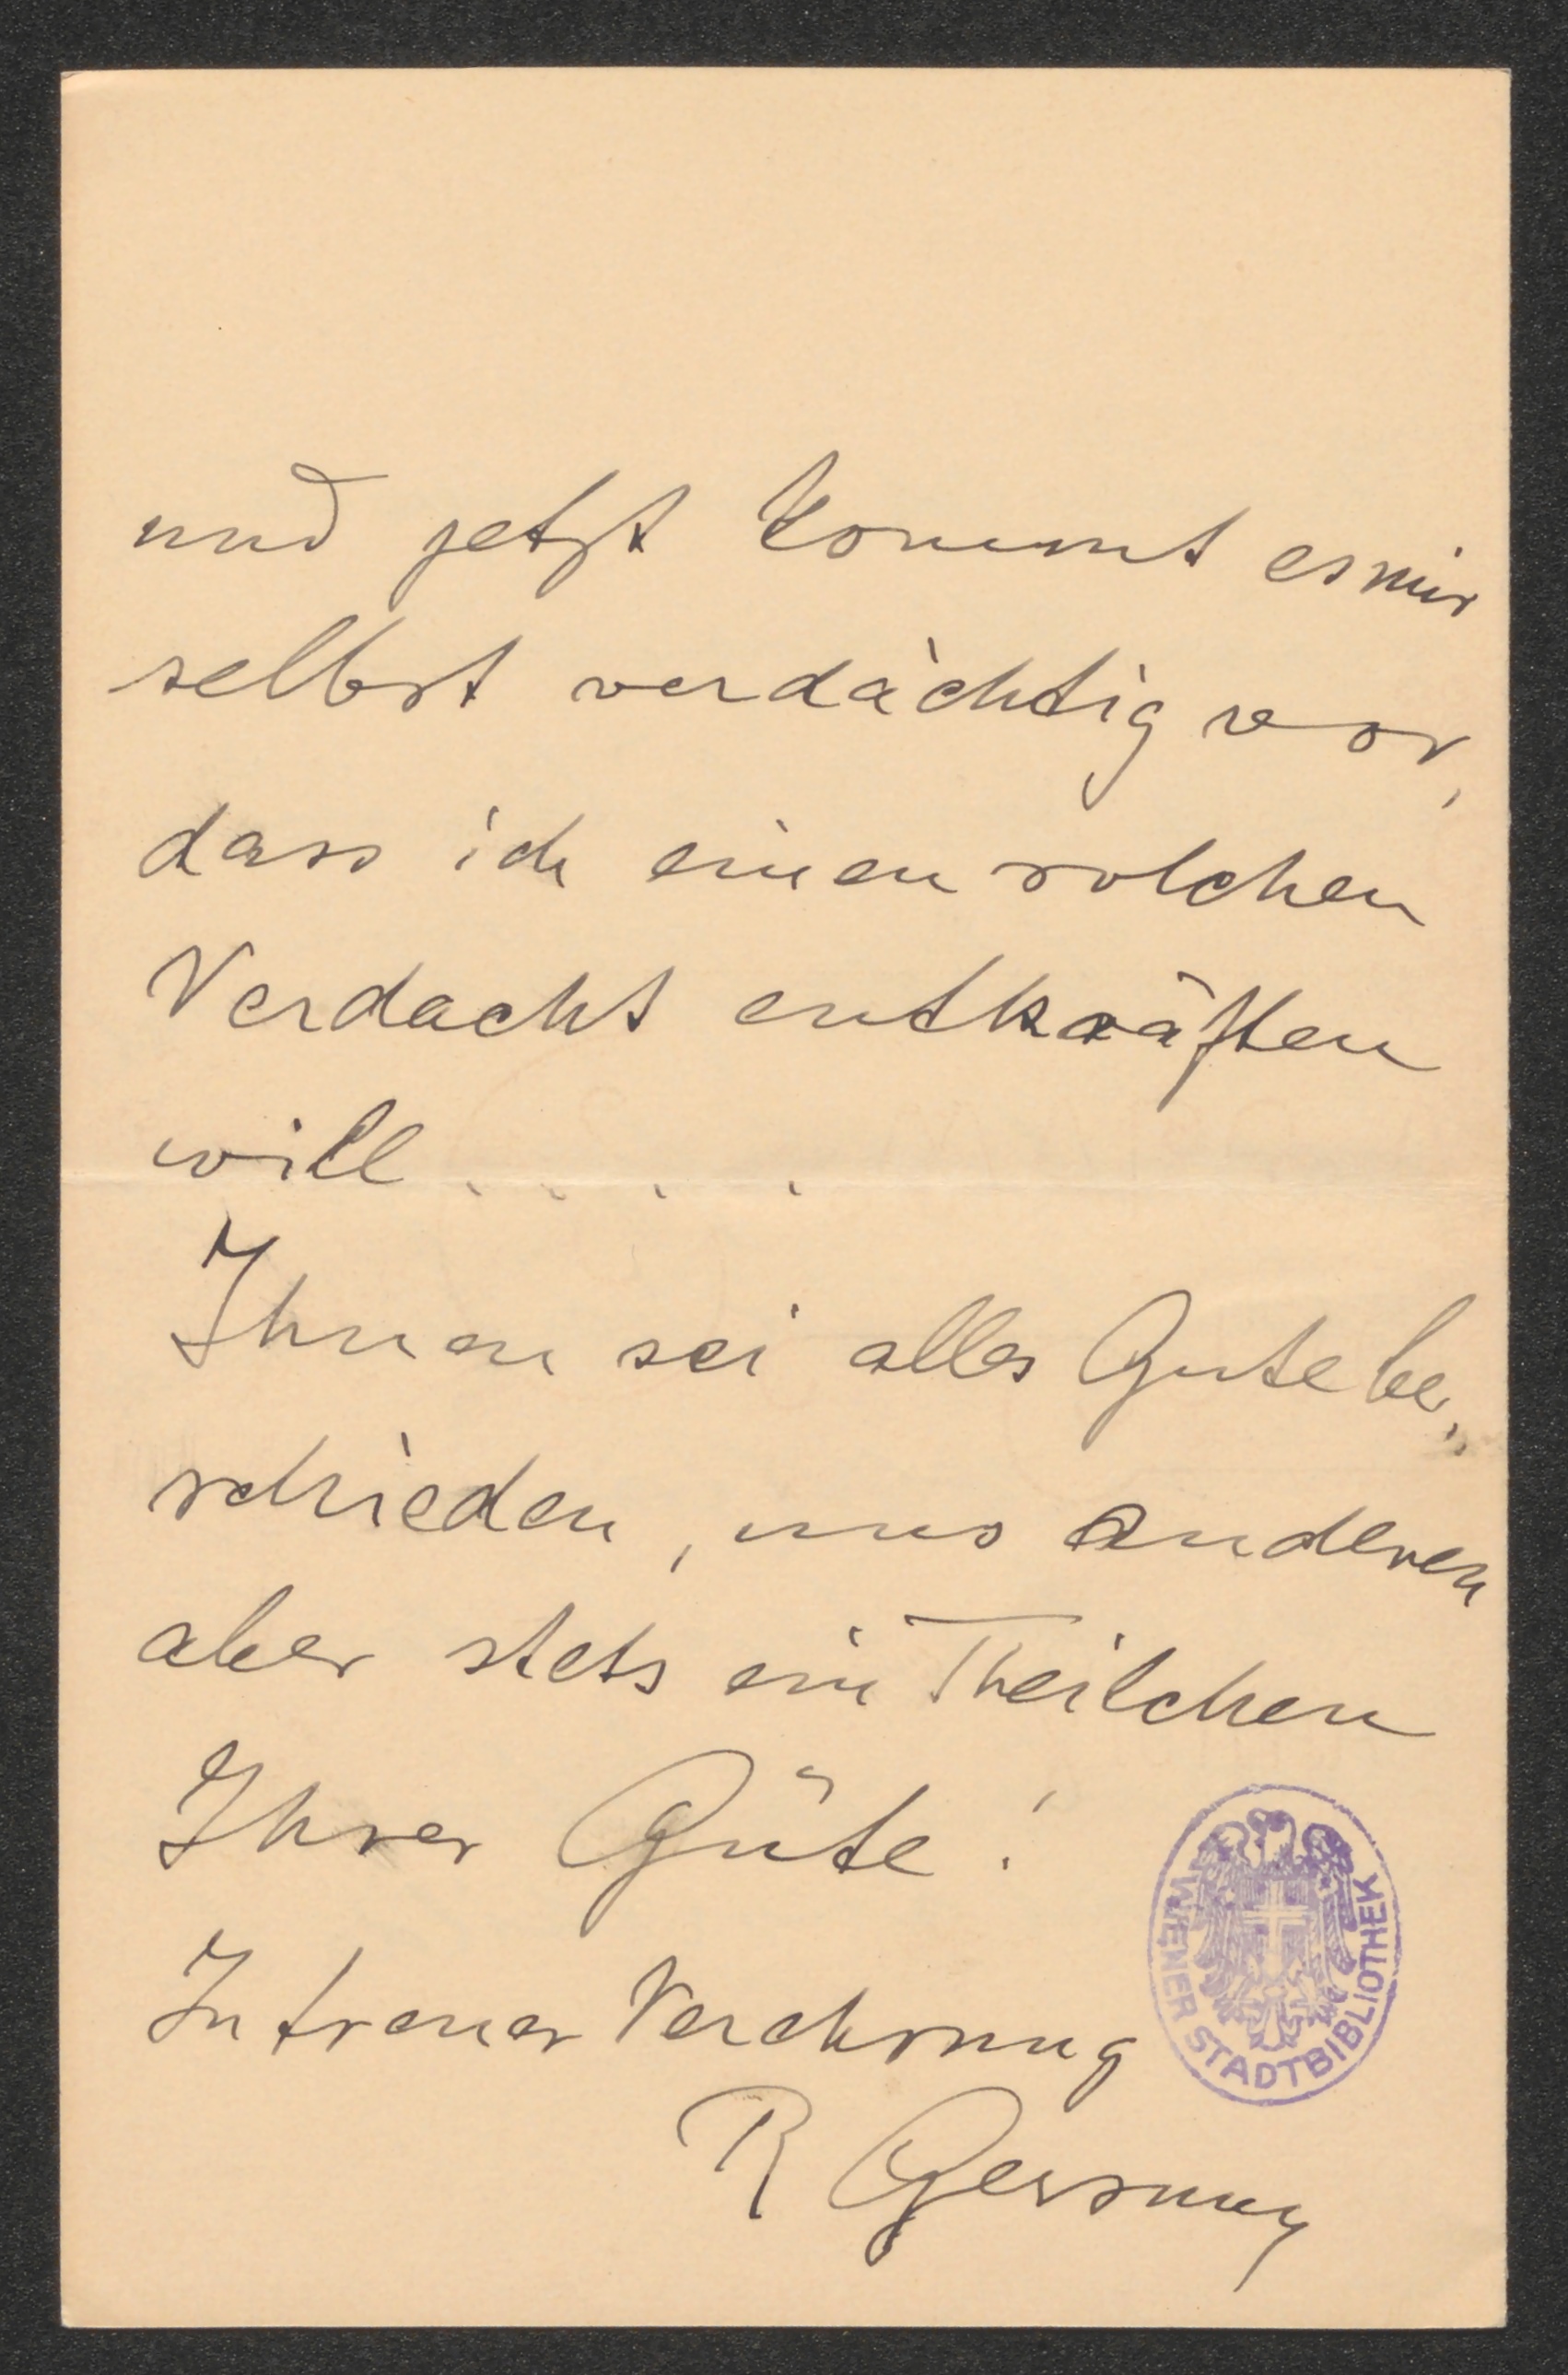 und jetzt kommt es mir
selbst verdächtig vor,
dass ich einen solchen
Verdacht entkräften
will . . . .
Ihnen sei alles Gute be„
schieden, uns anderen
aber stets ein Theilchen
Ihrer Güte!
In treuer Verehrung
R Gersuny
WIENER STADTBIBLIOTHEK